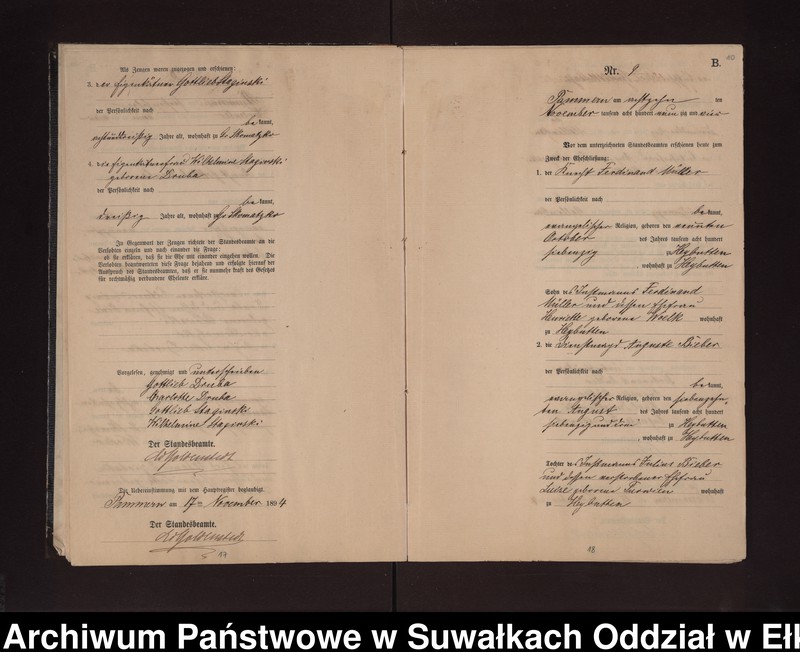 Als Zeugen waren zugezogen und erschienen:
3. der Eigenkätner Gottlieb Stapinski
der Persönlichkeit nach
be kannt,
achtunddreißig Jahre alt, wohnhaft zu
4. die Eigenkätnerfrau Wilhelmine Stapinski
geborene Druba
der Persönlichkeit nach
be kannt,
dreißig Jahre alt, wohnhaft zu
In Gegenwart der Zeugen richtete der Standesbeamte an die
Verlobten einzeln und nach einander die Frage:
ob sie erklären, daß sie die Ehe mit einander eingehen wollen. Die
Verlobten beantworteten diese Frage bejahend und erfolgte hierauf der
Ausspruch des Standesbeamten, daß er sie nunmehr kraft des Gesetzes
für rechtmäßig verbundene Eheleute erkläre.
Vorgelesen, genehmigt und unterschrieben
Gottlieb Druba
Charlotte Druba
Gottlieb Stapinski
Wilhelmine Stapinski
Der Standesbeamte.
Die Uebereinstimmung mit dem Hauptregister beglaubigt.
am 17ten November 1894
Der Standesbeamte.
17
B.
10
Nr. 9
am
November tausend acht hundert neunzig und vier
Vor dem unterzeichneten Standesbeamten erschienen heute zum
Zweck der Eheschließung:
1. der Knecht Ferdinand Müller
der Persönlichkeit nach
be kannt,
evangelischer Religion, geboren den neunten
October des Jahres tausend acht hundert
siebenzig zu Heybutten
, wohnhaft zu Heybutten
Sohn des Instmanns Ferdinand
Müller und dessen Ehefrau
Henriette geborene Woelk wohnhaft
zu Heybutten
2. die Dienstmagd Auguste Bieber
der Persönlichkeit nach
be kannt,
evangelischer Religion, geboren den siebenzehn-
ten August des Jahres tausend acht hundert
siebenzig und drei zu Heybutten
, wohnhaft zu Heybutten
Tochter des Instmanns Julius Bieber
und dessen verstorbener Ehefrau
Luise geborene wohnhaft
zu Heybutten
18
Archiwum Państwowe w Suwałkach Oddział w Ełk